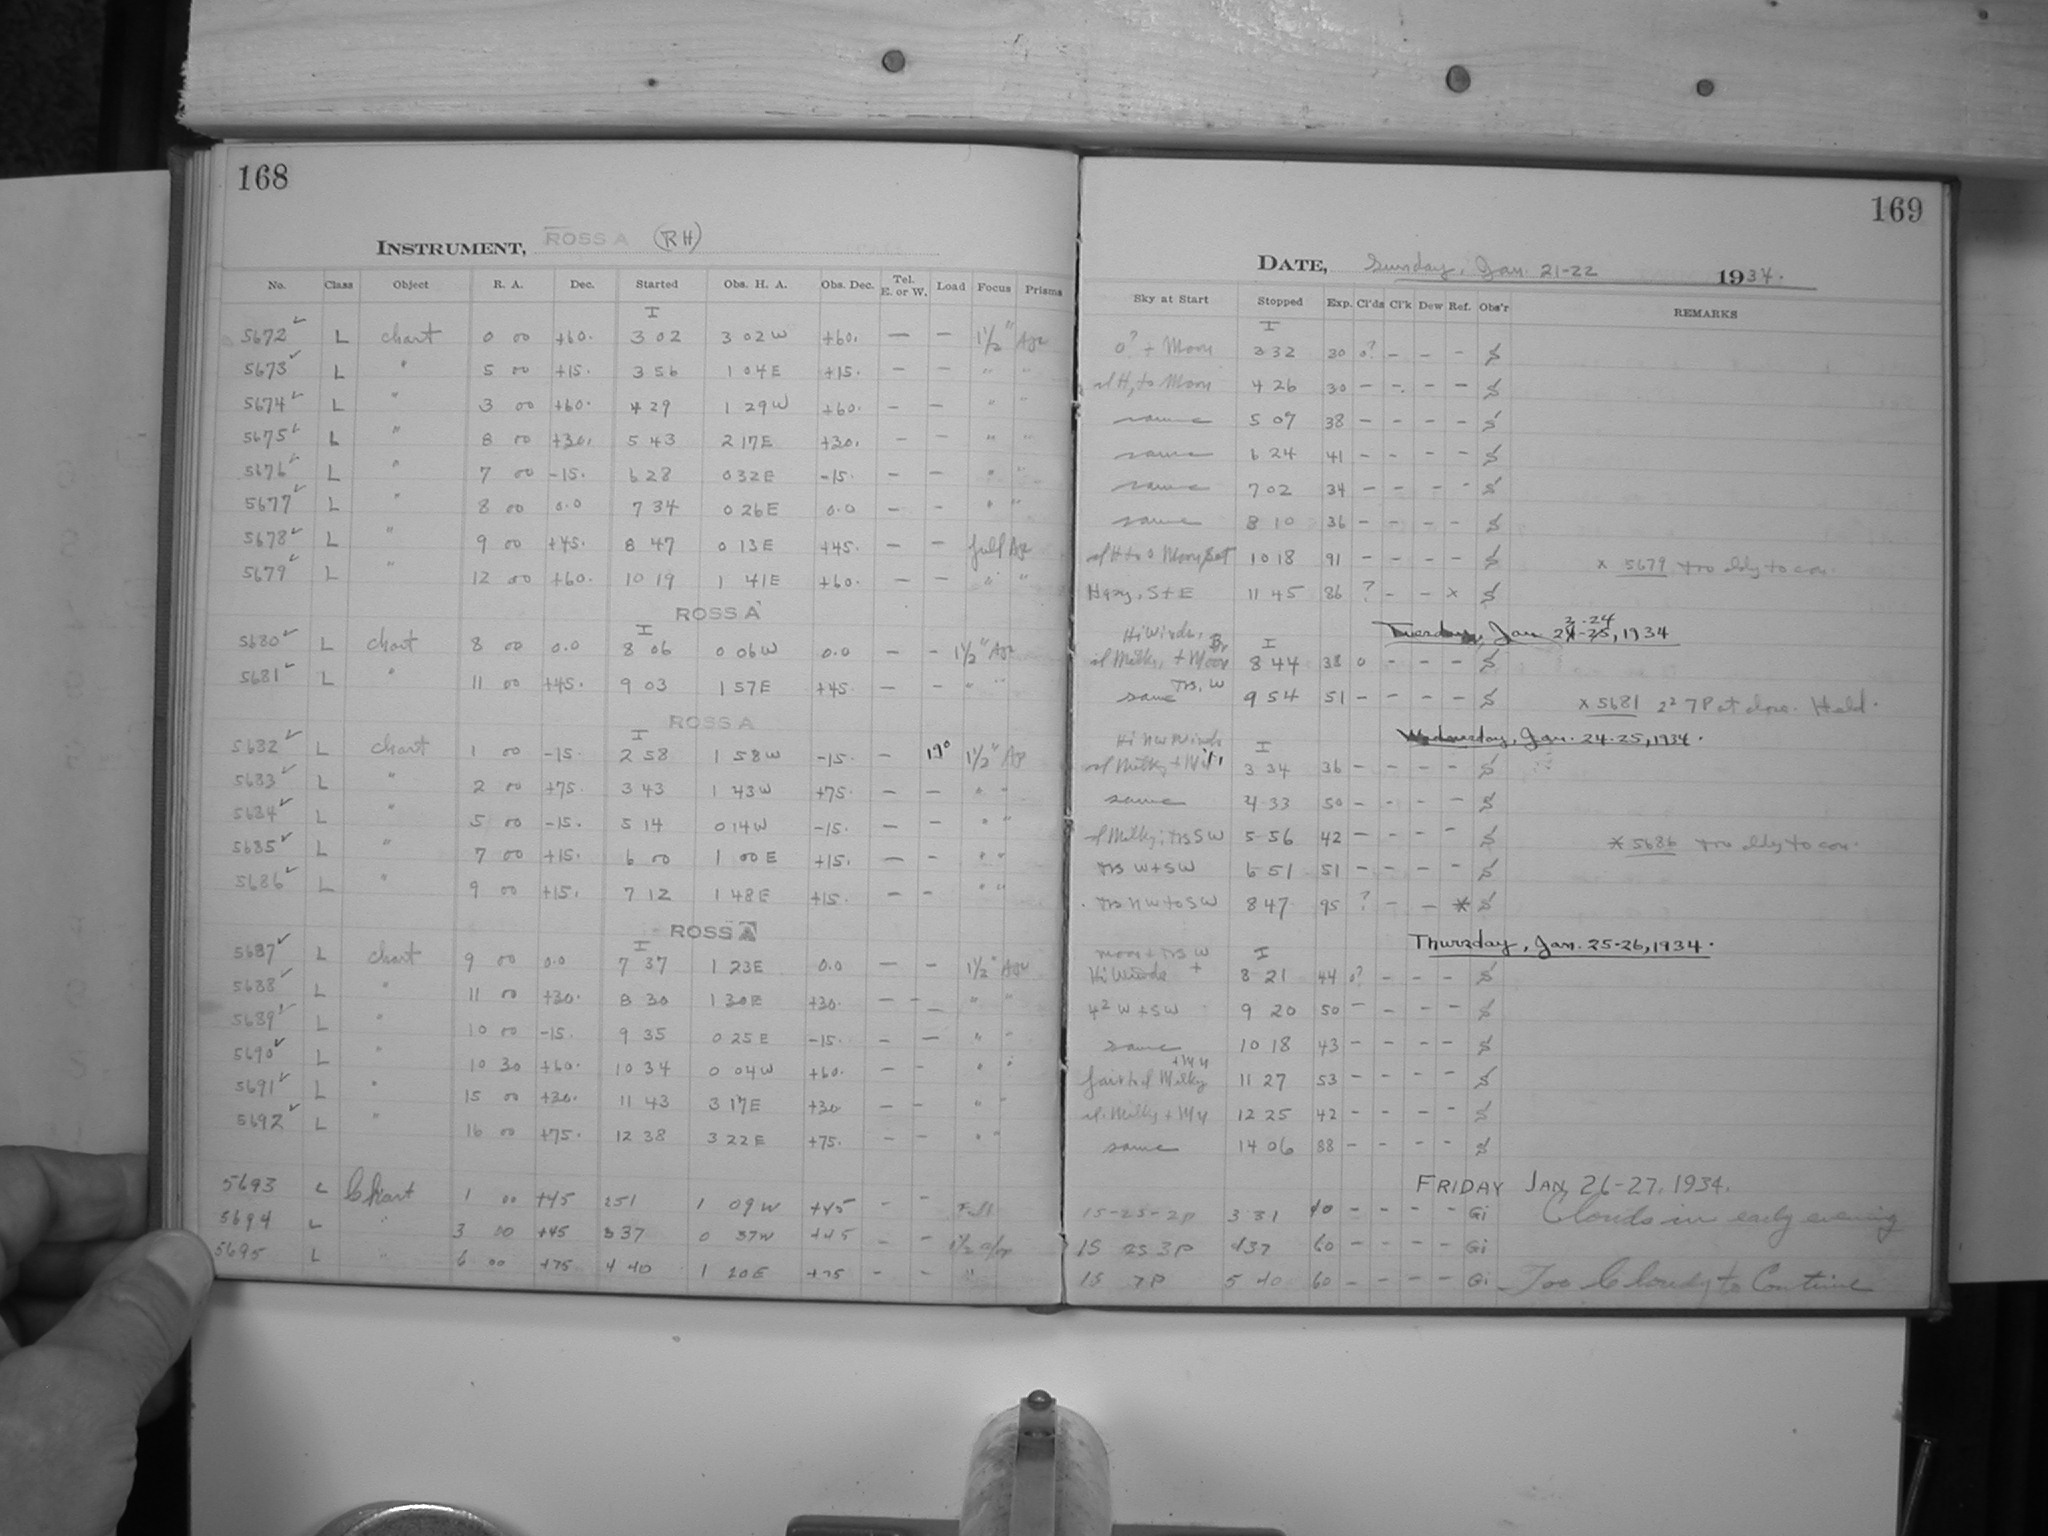 168
INSTRUMENT, ROSS A (RH)
No. Class Object R. A. Dec. Started Obs. H. A. Obs. Dec. Tel. E. or W. Load Focus Prisms
I
5672 L chart 0 00 +60. 3 02 3 02 W +60. — — 1½"
5673 L " 5 00 +15. 3 56 1 04 E +15. — — " "
5674 L " 3 00 +60. 4 29 1 29 W +60. — — " "
5675 L " 8 00 +30. 5 43 2 17 E +30. — — " "
5676 L " 7 00 -15. 6 28 0 32 E -15. — — " "
5677 L " 8 00 0.0 7 34 0 26 E 0.0 — — " "
5678 L " 9 00 +45. 8 47 0 13 E +45. — — full
5679 L " 12 00 +60. 10 19 1 41 E +60. — — " "
ROSS A
I
5680 L chart 8 00 0.0 8 06 0 06 W 0.0 — — 1½"
5681 L " 11 00 +45. 9 03 1 57 E +45 — — " "
ROSS A
I
5682 L chart 1 00 -15. 2 58 1 58 W -15. — 19° 1½" Ap
5683 L " 2 00 +75. 3 43 1 43 W +75. — — " "
5684 L " 5 00 -15. 5 14 0 14 W -15. — — " "
5685 L " 7 00 +15. 6 00 1 00 E +15. — — " "
5686 L " 9 00 +15. 7 12 1 48 E +15. — — " "
ROSS A
I
5687 L chart 9 00 0.0 7 37 1 23 E 0.0 — — 1½"
5688 L " 11 00 +30. 8 30 1 30 E +30. — — " "
5689 L " 10 00 -15. 9 35 0 25 E -15. — — " "
5690 L " 10 30 +60. 10 34 0 04 W +60. — — " "
5691 L " 15 00 +30. 11 43 3 17 E +30 — — " "
5692 L " 16 00 +75. 12 38 3 22 E +75. — — " "
5693 L Chart 1 00 +45 251 1 09 W +45 - - Full
5694 L " 3 00 +45 337 0 37 W +45 - - 1½
5695 L " 6 00 +75 4 40 1 20 E +75 - - "
169
DATE, Sunday, Jan. 21-22 1934.
Sky at Start Stopped Exp. Cl'ds Cl'k Dew Ref. Obs'r REMARKS
I
0? + Moon 3 32 30 0? - - - S
to Moon 4 26 30 - - - - S
same 5 07 38 - - - - S
same 6 24 41 - - - - S
same 7 02 34 - - - - S
same 8 10 36 - - - - S
10 18 91 - - - - S x 5679 too cldy to con.
Hazy, S + E 11 45 86 ? - - x S
Tuesday, Jan 23-24, 1934
Hi Winds, I
sl Milky, + Moon 8 44 38 0 - - - S
same 9 54 51 - - - - S x 5681 2² 7P at close. Held.
Wednesday, Jan. 24-25, 1934.
Hi NW Winds I
3 34 36 - - - - S
same 4 33 50 - - - - S
sl Milky, SW 5 56 42 - - - - S * 5686 too cldy to con.
W + SW 6 51 51 - - - - S
NW to SW 8 47 95 ? - - * S
Thursday, Jan. 25-26, 1934.
moon + W I
Hi Winds + 8 21 44 0? - - - S
4² W + SW 9 20 50 - - - - S
same 10 18 43 - - - - S
Milky 11 27 53 - - - - S
sl. Milky + 12 25 42 - - - - S
same 14 06 88 - - - - S
FRIDAY JAN 26-27, 1934.
1S-2S-2P 3 31 40 - - - - Gi Clouds in early evening
1S 2S 3P 437 60 - - - - Gi
1S 7P 5 40 60 - - - - Gi Too Cloudy to Continue